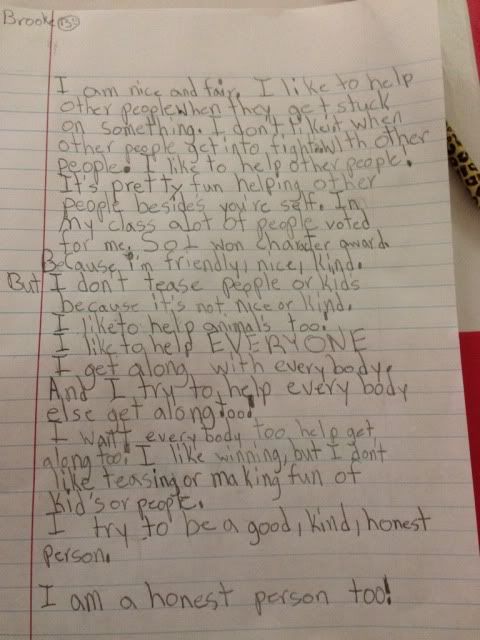 Brooke 139
I am nice and fair. I like to help
other people when they get stuck
on something. I don't like it when
other people get into fights with other
people. I like to help other people.
It's pretty fun helping other
people besides you're self. In
my class alot of people voted
for me. So I won charater award.
Because I'm friendly, nice, kind.
But I don't tease people or kids
because it's not nice or kind.
I like to help animal's too!
I like to help EVERYONE
I get along with every body.
And I try to help every body
else get along too!
I want every body too help get
along too! I like winning, but I don't
like teasing or making fun of
kid's or people.
I try to be a good, kind, honest
person.
I am a honest person too!